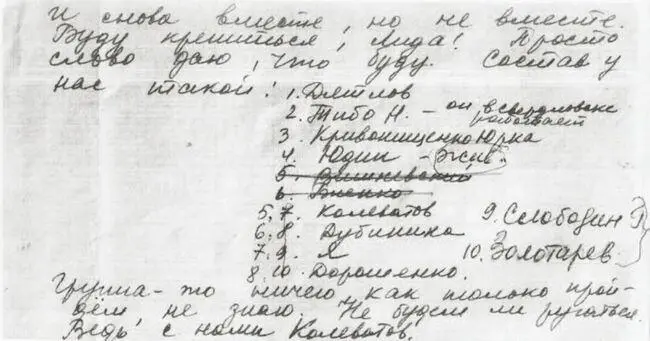 И снова вместе, но не вместе.
Буду крепиться, Лида! Просто
слово даю, что буду. Состав у
нас такой: 1. Дятлов
2. Тибо Н. – он в Свердловске работает
3. Кривонищенко Юрка
4. Юдин – жив.
5. Вишневский
6. Биенко
5. 7. Колеватов 9. Слободин
6. 8. Дубинина 10. Золотарев
7. 9. Я
8. 10. Дорошенко.
Группа – то ничего, как только прой-
дём, не знаю. Не будем ли ругаться.
Ведь с нами Колеватов.